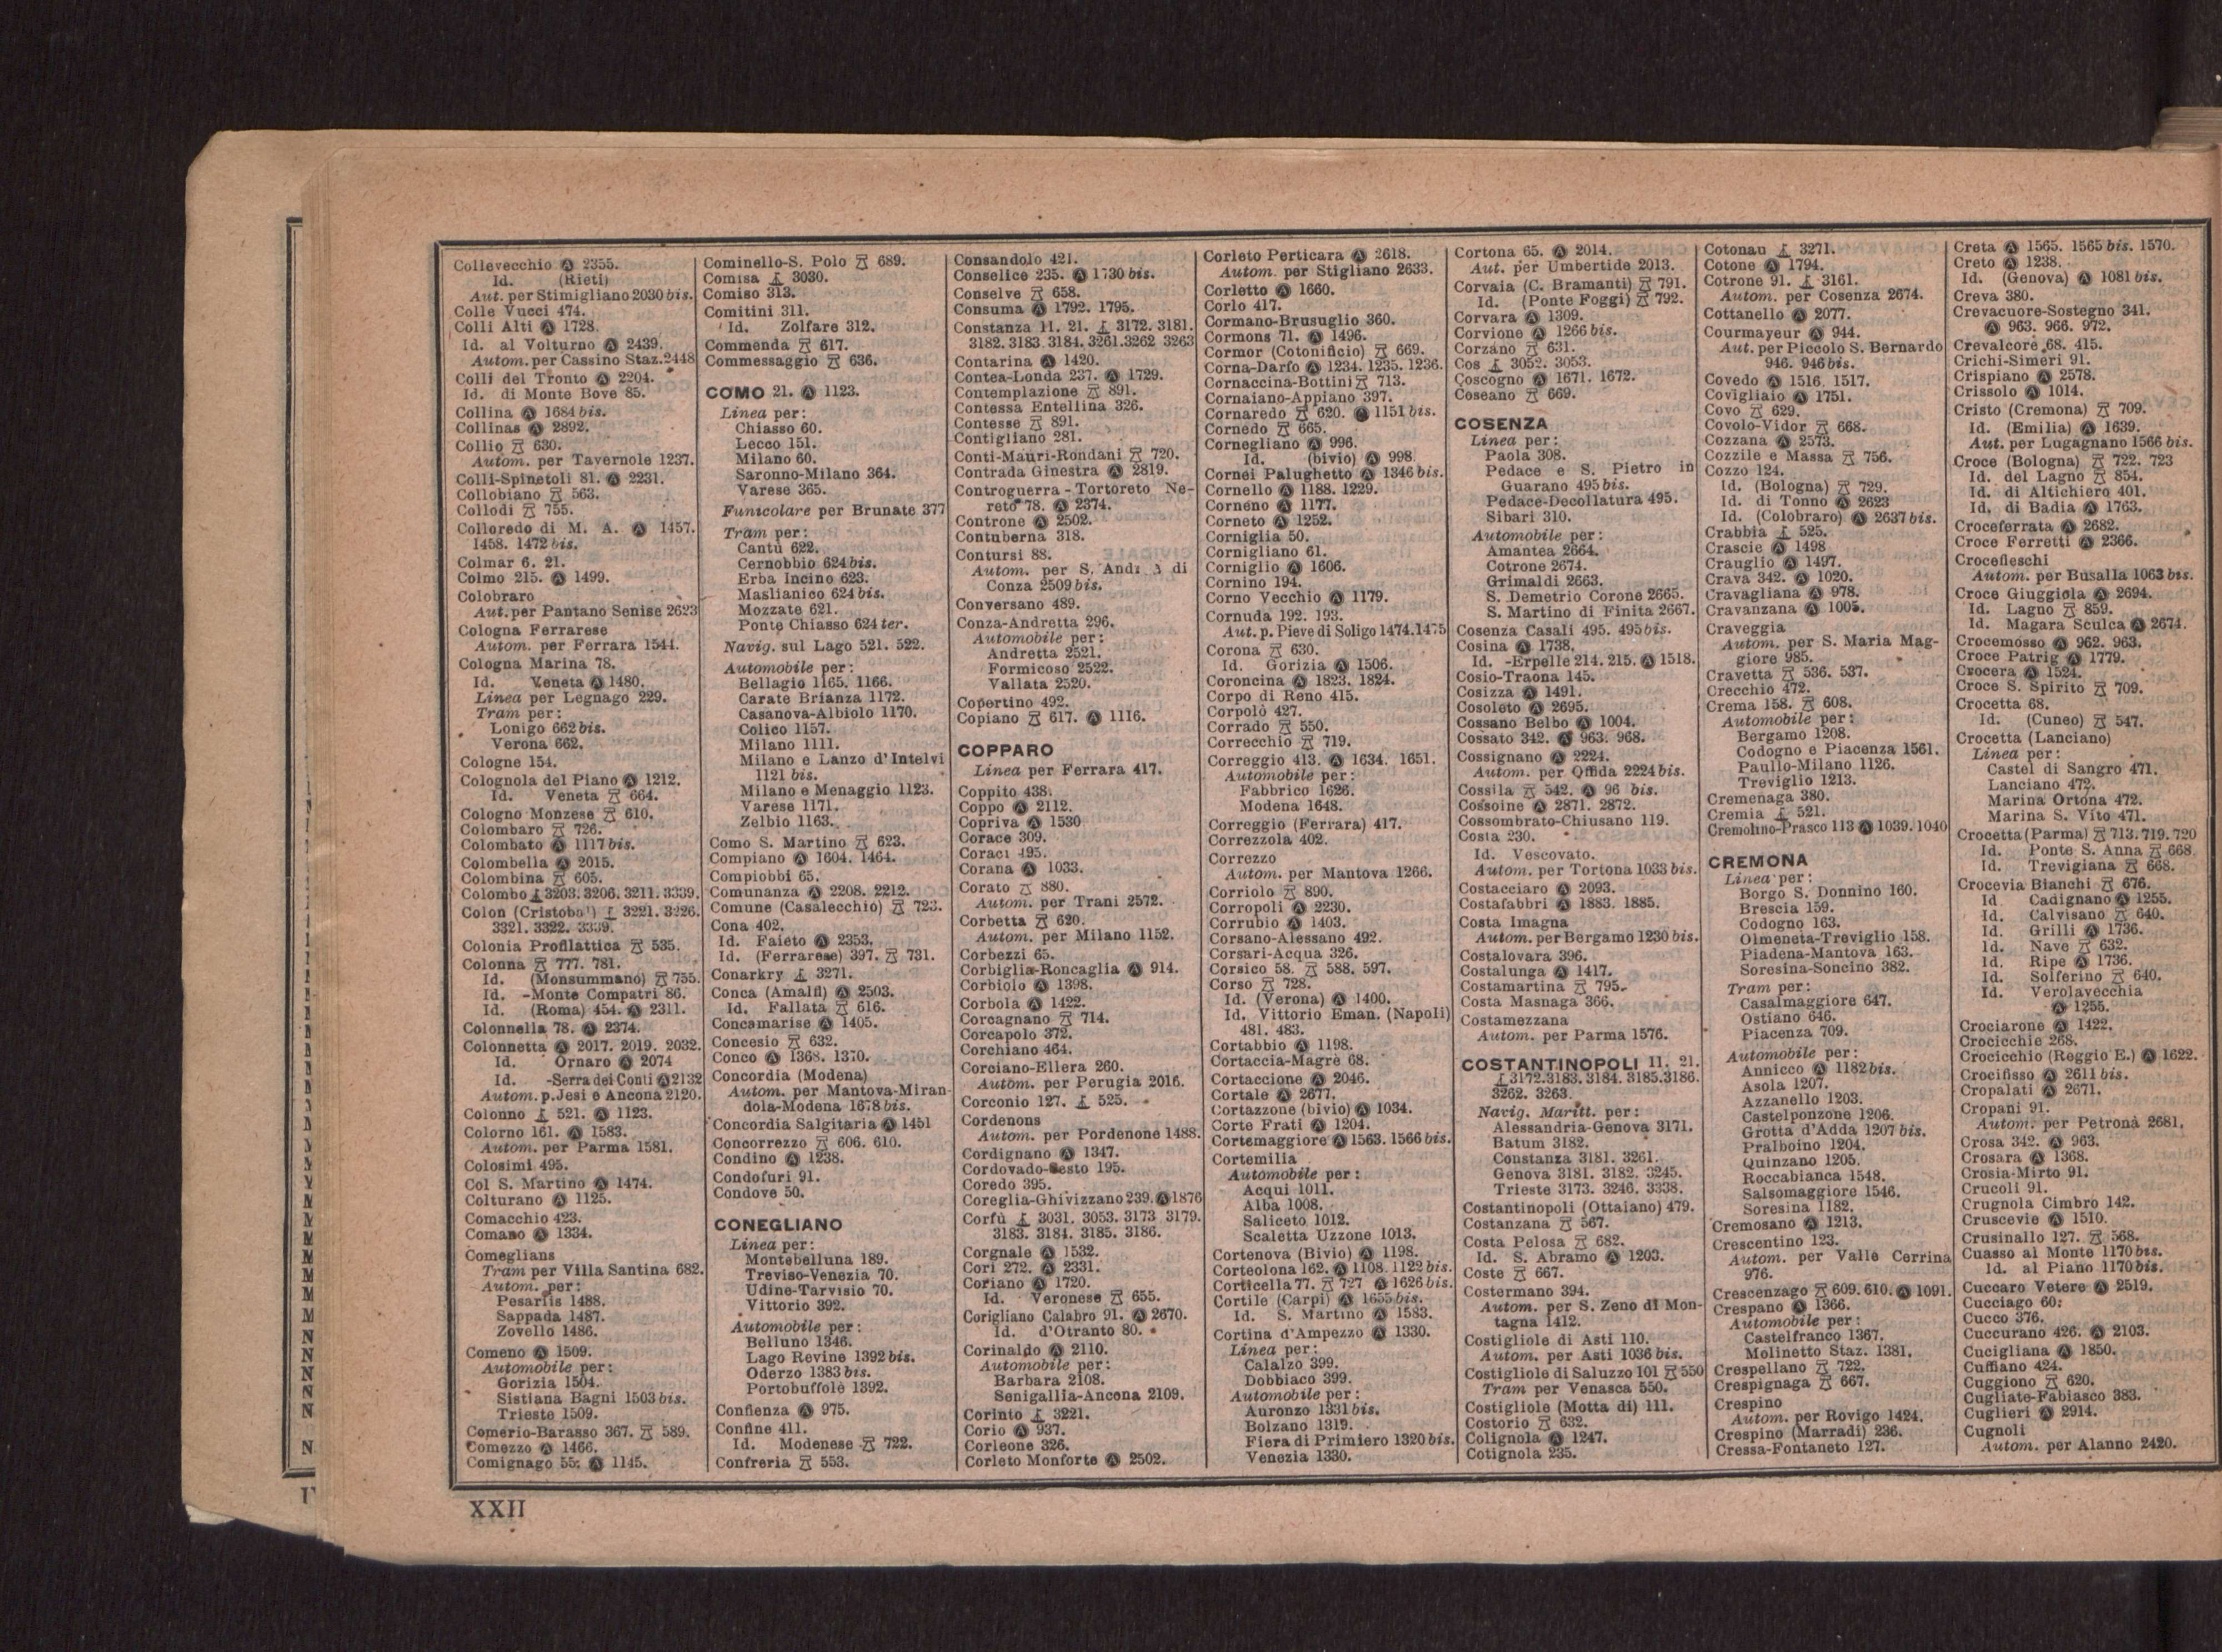 Collevecchio Ⓐ 2355.
Id. (Rieti)
Aut. per Stimigliano 2030 bis.
Colle Vucci 474.
Colli Alti Ⓐ 1728.
Id. al Volturno Ⓐ 2439.
Autom. per Cassino Staz. 2448
Colli del Tronto Ⓐ 2204.
Id. di Monte Bove 85.
Collina Ⓐ 1684 bis.
Collinas Ⓐ 2892.
Collio 630.
Autom. per Tavernole 1237.
Colli-Spinetoli 81. Ⓐ 2231.
Collobiano 563.
Collodi 755.
Colloredo di M. A. Ⓐ 1457.
1458. 1472 bis.
Colmar 6. 21.
Colmo 215. Ⓐ 1499.
Colobraro
Aut. per Pantano Senise 2623
Cologna Ferrarese
Autom. per Ferrara 1544.
Cologna Marina 78.
Id. Veneta Ⓐ 1480.
Linea per Legnago 229.
Tram per:
Lonigo 662 bis.
Verona 662.
Cologne 154.
Colognola del Piano Ⓐ 1212.
Id. Veneta 664.
Cologno Monzese 610.
Colombaro 726.
Colombato Ⓐ 1117 bis.
Colombella Ⓐ 2015.
Colombina 605.
Colombo 3203. 3206. 3211. 3339.
Colon (Cristobal) 3221. 3226.
3321. 3322. 3339.
Colonia Profilattica 535.
Colonna 777. 781.
Id. (Monsummano) 755.
Id. -Monte Compatri 86.
Id. (Roma) 454. Ⓐ 2311.
Colonnella 78. Ⓐ 2374.
Colonnetta Ⓐ 2017. 2019. 2032.
Id. Ornaro Ⓐ 2074
Id. -Serra dei Conti Ⓐ 2132
Autom. p. Jesi e Ancona 2120.
Colonno 521. Ⓐ 1123.
Colorno 161. Ⓐ 1583.
Autom. per Parma 1581.
Colosimi 495.
Col S. Martino Ⓐ 1474.
Colturano Ⓐ 1125.
Comacchio 423.
Comano Ⓐ 1334.
Comeglians
Tram per Villa Santina 682.
Autom. per:
Pesariis 1488.
Sappada 1487.
Zovello 1486.
Comeno Ⓐ 1509.
Automobile per:
Gorizia 1504.
Sistiana Bagni 1503 bis.
Trieste 1509.
Comerio-Barasso 367. 589.
Comezzo Ⓐ 1466.
Comignago 55. Ⓐ 1145.
Cominello-S. Polo 689.
Comisa 3030.
Comiso 313.
Comitini 311.
Id. Zolfare 312.
Commenda 617.
Commessaggio 636.
COMO 21. Ⓐ 1123.
Linea per:
Chiasso 60.
Lecco 151.
Milano 60.
Saronno-Milano 364.
Varese 365.
Funicolare per Brunate 377
Tram per:
Cantù 622.
Cernobbio 624 bis.
Erba Incino 623.
Maslianico 624 bis.
Mozzate 621.
Ponte Chiasso 624 ter.
Navig. sul Lago 521. 522.
Automobile per:
Bellagio 1165. 1166.
Carate Brianza 1172.
Casanova-Albiolo 1170.
Colico 1157.
Milano 1111.
Milano e Lanzo d'Intelvi
1121 bis.
Milano e Menaggio 1123.
Varese 1171.
Zelbio 1163.
Como S. Martino 623.
Compiano Ⓐ 1604. 1464.
Compiobbi 65.
Comunanza Ⓐ 2208. 2212.
Comune (Casalecchio) 723.
Cona 402.
Id. Faieto Ⓐ 2353.
Id. (Ferrarese) 397. 731.
Conarkry 3271.
Conca (Amalfi) Ⓐ 2503.
Id. Fallata 616.
Concamarise Ⓐ 1405.
Concesio 632.
Conco Ⓐ 1368. 1370.
Concordia (Modena)
Autom. per Mantova-Miran-
dola-Modena 1678 bis.
Concordia Salgitaria Ⓐ 1451
Concorrezzo 606. 610.
Condino Ⓐ 1238.
Condofuri 91.
Condove 50.
CONEGLIANO
Linea per:
Montebelluna 189.
Treviso-Venezia 70.
Udine-Tarvisio 70.
Vittorio 392.
Automobile per:
Belluno 1346.
Lago Revine 1392 bis.
Oderzo 1383 bis.
Portobuffolè 1392.
Confienza Ⓐ 975.
Confine 411.
Id. Modenese 722.
Confreria 553.
Consandolo 421.
Conselice 235. Ⓐ 1730 bis.
Conselve 658.
Consuma Ⓐ 1792. 1795.
Constanza 11. 21. 3172. 3181.
3182. 3183. 3184. 3261. 3262 3263
Contarina Ⓐ 1420.
Contea-Londa 237. Ⓐ 1729.
Contemplazione 891.
Contessa Entellina 326.
Contesse 891.
Contigliano 281.
Conti-Mauri-Rondani 720.
Contrada Ginestra Ⓐ 2819.
Controguerra - Tortoreto Ne-
reto 78. Ⓐ 2374.
Controne Ⓐ 2502.
Contuberna 318.
Contursi 88.
Autom. per S. di
Conza 2509 bis.
Conversano 489.
Conza-Andretta 296.
Automobile per:
Andretta 2521.
Formicoso 2522.
Vallata 2520.
Copertino 492.
Copiano 617. Ⓐ 1116.
COPPARO
Linea per Ferrara 417.
Coppito 438.
Coppo Ⓐ 2112.
Copriva Ⓐ 1530
Corace 309.
Coraci 495.
Corana Ⓐ 1033.
Corato 880.
Autom. per Trani 2572.
Corbetta 620.
Autom. per Milano 1152.
Corbezzi 65.
Corbiglia-Roncaglia Ⓐ 914.
Corbiolo Ⓐ 1398.
Corbola Ⓐ 1422.
Corcagnano 714.
Corcapolo 372.
Corchiano 464.
Corciano-Ellera 260.
Autom. per Perugia 2016.
Corconio 127. 525.
Cordenons
Autom. per Pordenone 1488.
Cordignano Ⓐ 1347.
Cordovado-Sesto 195.
Coredo 395.
Coreglia-Ghivizzano 239. Ⓐ 1876
Corfù 3031. 3053. 3173 3179.
3183. 3184. 3185. 3186.
Corgnale Ⓐ 1532.
Cori 272. Ⓐ 2331.
Coriano Ⓐ 1720.
Id. Veronese 655.
Corigliano Calabro 91. Ⓐ 2670.
Id. d'Otranto 80.
Corinaldo Ⓐ 2110.
Automobile per:
Barbara 2108.
Senigallia-Ancona 2109.
Corinto 3221.
Corio Ⓐ 937.
Corleone 326.
Corleto Monforte Ⓐ 2502.
Corleto Perticara Ⓐ 2618.
Autom. per Stigliano 2633.
Corletto Ⓐ 1660.
Corlo 417.
Cormano-Brusuglio 360.
Cormons 71. Ⓐ 1496.
Cormor (Cotonificio) 669.
Corna-Darfo Ⓐ 1234. 1235. 1236.
Cornaccina-Bottini 713.
Cornaiano-Appiano 397.
Cornaredo 620. Ⓐ 1151 bis.
Cornedo 665.
Cornegliano Ⓐ 996.
Id. (bivio) Ⓐ 998.
Cornei Palughetto Ⓐ 1346 bis.
Cornello Ⓐ 1188. 1229.
Corneno Ⓐ 1177.
Corneto Ⓐ 1252.
Corniglia 50.
Cornigliano 61.
Corniglio Ⓐ 1606.
Cornino 194.
Corno Vecchio Ⓐ 1179.
Cornuda 192. 193.
Aut. p. Pieve di Soligo 1474. 1475
Corona 630.
Id. Gorizia Ⓐ 1506.
Coroncina Ⓐ 1823. 1824.
Corpo di Reno 415.
Corpolò 427.
Corrado 550.
Correcchio 719.
Correggio 413. Ⓐ 1634. 1651.
Automobile per:
Fabbrico 1626.
Modena 1648.
Correggio (Ferrara) 417.
Correzzola 402.
Correzzo
Autom. per Mantova 1266.
Corriolo 890.
Corropoli Ⓐ 2230.
Corrubio Ⓐ 1403.
Corsano-Alessano 492.
Corsari-Acqua 326.
Corsico 58. 588. 597.
Corso 728.
Id. (Verona) Ⓐ 1400.
Id. Vittorio Eman. (Napoli)
481. 483.
Cortabbio Ⓐ 1198.
Cortaccia-Magrè 68.
Cortaccione Ⓐ 2046.
Cortale Ⓐ 2677.
Cortazzone (bivio) Ⓐ 1034.
Corte Frati Ⓐ 1204.
Cortemaggiore Ⓐ 1563. 1566 bis.
Cortemilia
Automobile per:
Acqui 1011.
Alba 1008.
Saliceto 1012.
Scaletta Uzzone 1013.
Cortenova (Bivio) Ⓐ 1198.
Corteolona 162. Ⓐ 1108. 1122 bis.
Corticella 77. 727 Ⓐ 1626 bis.
Cortile (Carpi) Ⓐ 1655 bis.
Id. S. Martino Ⓐ 1583.
Cortina d'Ampezzo Ⓐ 1330.
Linea per:
Calalzo 399.
Dobbiaco 399.
Automobile per:
Auronzo 1331 bis.
Bolzano 1319.
Fiera di Primiero 1320 bis.
Venezia 1330.
Cortona 65. Ⓐ 2014.
Aut. per Umbertide 2013.
Corvaia (C. Bramanti) 791.
Id. (Ponte Foggi) 792.
Corvara Ⓐ 1309.
Corvione Ⓐ 1266 bis.
Corzano 631.
Cos 3052. 3053.
Coscogno Ⓐ 1671. 1672.
Coseano 669.
COSENZA
Linea per:
Paola 308.
Pedace e S. Pietro in
Guarano 495 bis.
Pedace-Decollatura 495.
Sibari 310.
Automobile per:
Amantea 2664.
Cotrone 2674.
Grimaldi 2663.
S. Demetrio Corone 2665.
S. Martino di Finita 2667.
Cosenza Casali 495. 495 bis.
Cosina Ⓐ 1738.
Id. -Erpelle 214. 215. Ⓐ 1518.
Cosio-Traona 145.
Cosizza Ⓐ 1491.
Cosoleto Ⓐ 2695.
Cossano Belbo Ⓐ 1004.
Cossato 342. Ⓐ 963. 968.
Cossignano Ⓐ 2224.
Autom. per Offida 2224 bis.
Cossila 542. Ⓐ 96 bis.
Cossoine Ⓐ 2871. 2872.
Cossombrato-Chiusano 119.
Costa 230.
Id. Vescovato.
Autom. per Tortona 1033 bis.
Costacciaro Ⓐ 2093.
Costafabbri Ⓐ 1883. 1885.
Costa Imagna
Autom. per Bergamo 1230 bis.
Costalovara 396.
Costalunga Ⓐ 1417.
Costamartina 795.
Costa Masnaga 366.
Costamezzana
Autom. per Parma 1576.
COSTANTINOPOLI 11. 21.
3172. 3183. 3184. 3185. 3186.
3262. 3263.
Navig. Maritt. per:
Alessandria-Genova 3171.
Batum 3182.
Constanza 3181. 3261.
Genova 3181. 3182. 3245.
Trieste 3173. 3246. 3338.
Costantinopoli (Ottaiano) 479.
Costanzana 567.
Costa Pelosa 682.
Id. S. Abramo Ⓐ 1203.
Coste 667.
Costermano 394.
Autom. per S. Zeno di Mon-
tagna 1412.
Costigliole di Asti 110.
Autom. per Asti 1036 bis.
Costigliole di Saluzzo 101 550
Tram per Venasca 550.
Costigliole (Motta di) 111.
Costorio 632.
Cotignola Ⓐ 1247.
Cotignola 235.
Cotonau 3271.
Cotone Ⓐ 1794.
Cotrone 91. 3161.
Autom. per Cosenza 2674.
Cottanello Ⓐ 2077.
Courmayeur Ⓐ 944.
Aut. per Piccolo S. Bernardo
946. 946 bis.
Covedo Ⓐ 1516. 1517.
Covigliaio Ⓐ 1751.
Covo 629.
Covolo-Vidor 668.
Cozzana Ⓐ 2573.
Cozzile e Massa 756.
Cozzo 124.
Id. (Bologna) 729.
Id. di Tonno Ⓐ 2623
Id. (Colobraro) Ⓐ 2637 bis.
Crabbia 525.
Crascie Ⓐ 1498
Crauglio Ⓐ 1497.
Crava 342. Ⓐ 1020.
Cravagliana Ⓐ 978.
Cravanzana Ⓐ 1005.
Craveggia
Autom. per S. Maria Mag-
giore 985.
Cravetta 536. 537.
Crecchio 472.
Crema 158. 608.
Automobile per:
Bergamo 1208.
Codogno e Piacenza 1561.
Paullo-Milano 1126.
Treviglio 1213.
Cremenaga 380.
Cremia 521.
Cremolino-Prasco 113 Ⓐ 1039. 1040
CREMONA
Linea per:
Borgo S. Donnino 160.
Brescia 159.
Codogno 163.
Olmeneta-Treviglio 158.
Piadena-Mantova 163.
Soresina-Soncino 382.
Tram per:
Casalmaggiore 647.
Ostiano 646.
Piacenza 709.
Automobile per:
Annicco Ⓐ 1182 bis.
Asola 1207.
Azzanello 1203.
Castelponzone 1206.
Grotta d'Adda 1207 bis.
Pralboino 1204.
Quinzano 1205.
Roccabianca 1548.
Salsomaggiore 1546.
Soresina 1182.
Cremosano Ⓐ 1213.
Crescentino 123.
Autom. per Valle Cerrina
976.
Crescenzago 609. 610. Ⓐ 1091.
Crespano Ⓐ 1366.
Automobile per:
Castelfranco 1367.
Molinetto Staz. 1381.
Crespellano 722.
Crespignaga 667.
Crespino
Autom. per Rovigo 1424.
Crespino (Marradi) 236.
Cressa-Fontaneto 127.
Creta Ⓐ 1565. 1565 bis. 1570.
Creto Ⓐ 1238.
Id. (Genova) Ⓐ 1081 bis.
Creva 380.
Crevacuore-Sostegno 341.
Ⓐ 963. 966. 972.
Crevalcore 68. 415.
Crichi-Simeri 91.
Crispiano Ⓐ 2578.
Crissolo Ⓐ 1014.
Cristo (Cremona) 709.
Id. (Emilia) Ⓐ 1639.
Aut. per Lugagnano 1566 bis.
Croce (Bologna) 722. 723
Id. del Lagno 854.
Id. di Altichiero 401.
Id. di Badia Ⓐ 1763.
Croceferrata Ⓐ 2682.
Croce Ferretti Ⓐ 2366.
Crocefieschi
Autom. per Busalla 1063 bis.
Croce Giuggiola Ⓐ 2694.
Id. Lagno 859.
Id. Magara Sculca Ⓐ 2674.
Crocemosso Ⓐ 962. 963.
Croce Patrig Ⓐ 1779.
Crocera Ⓐ 1524.
Croce S. Spirito 709.
Crocetta 68.
Id. (Cuneo) 547.
Crocetta (Lanciano)
Linea per:
Castel di Sangro 471.
Lanciano 472.
Marina Ortona 472.
Marina S. Vito 471.
Crocetta (Parma) 713. 719. 720
Id. Ponte S. Anna 668.
Id. Trevigiana 668.
Crocevia Bianchi 676.
Id Cadignano Ⓐ 1255.
Id. Calvisano 640.
Id. Grilli Ⓐ 1736.
Id. Nave 632.
Id. Ripe Ⓐ 1736.
Id. Solferino 640.
Id. Verolavecchia
Ⓐ 1255.
Crociarone Ⓐ 1422.
Crocicchie 268.
Crocicchio (Reggio E.) Ⓐ 1622.
Crocifisso Ⓐ 2611 bis.
Cropalati Ⓐ 2671.
Cropani 91.
Autom. per Petronà 2681.
Crosa 342. Ⓐ 963.
Crosara Ⓐ 1368.
Crosia-Mirto 91.
Crucoli 91.
Crugnola Cimbro 142.
Cruscevie Ⓐ 1510.
Crusinallo 127. 568.
Cuasso al Monte 1170 bis.
Id. al Piano 1170 bis.
Cuccaro Vetere Ⓐ 2519.
Cucciago 60.
Cucco 376.
Cuccurano 426. Ⓐ 2103.
Cucigliana Ⓐ 1850.
Cuffiano 424.
Cuggiono 620.
Cugliate-Fabiasco 383.
Cuglieri Ⓐ 2914.
Cugnoli
Autom. per Alanno 2420.
XXII